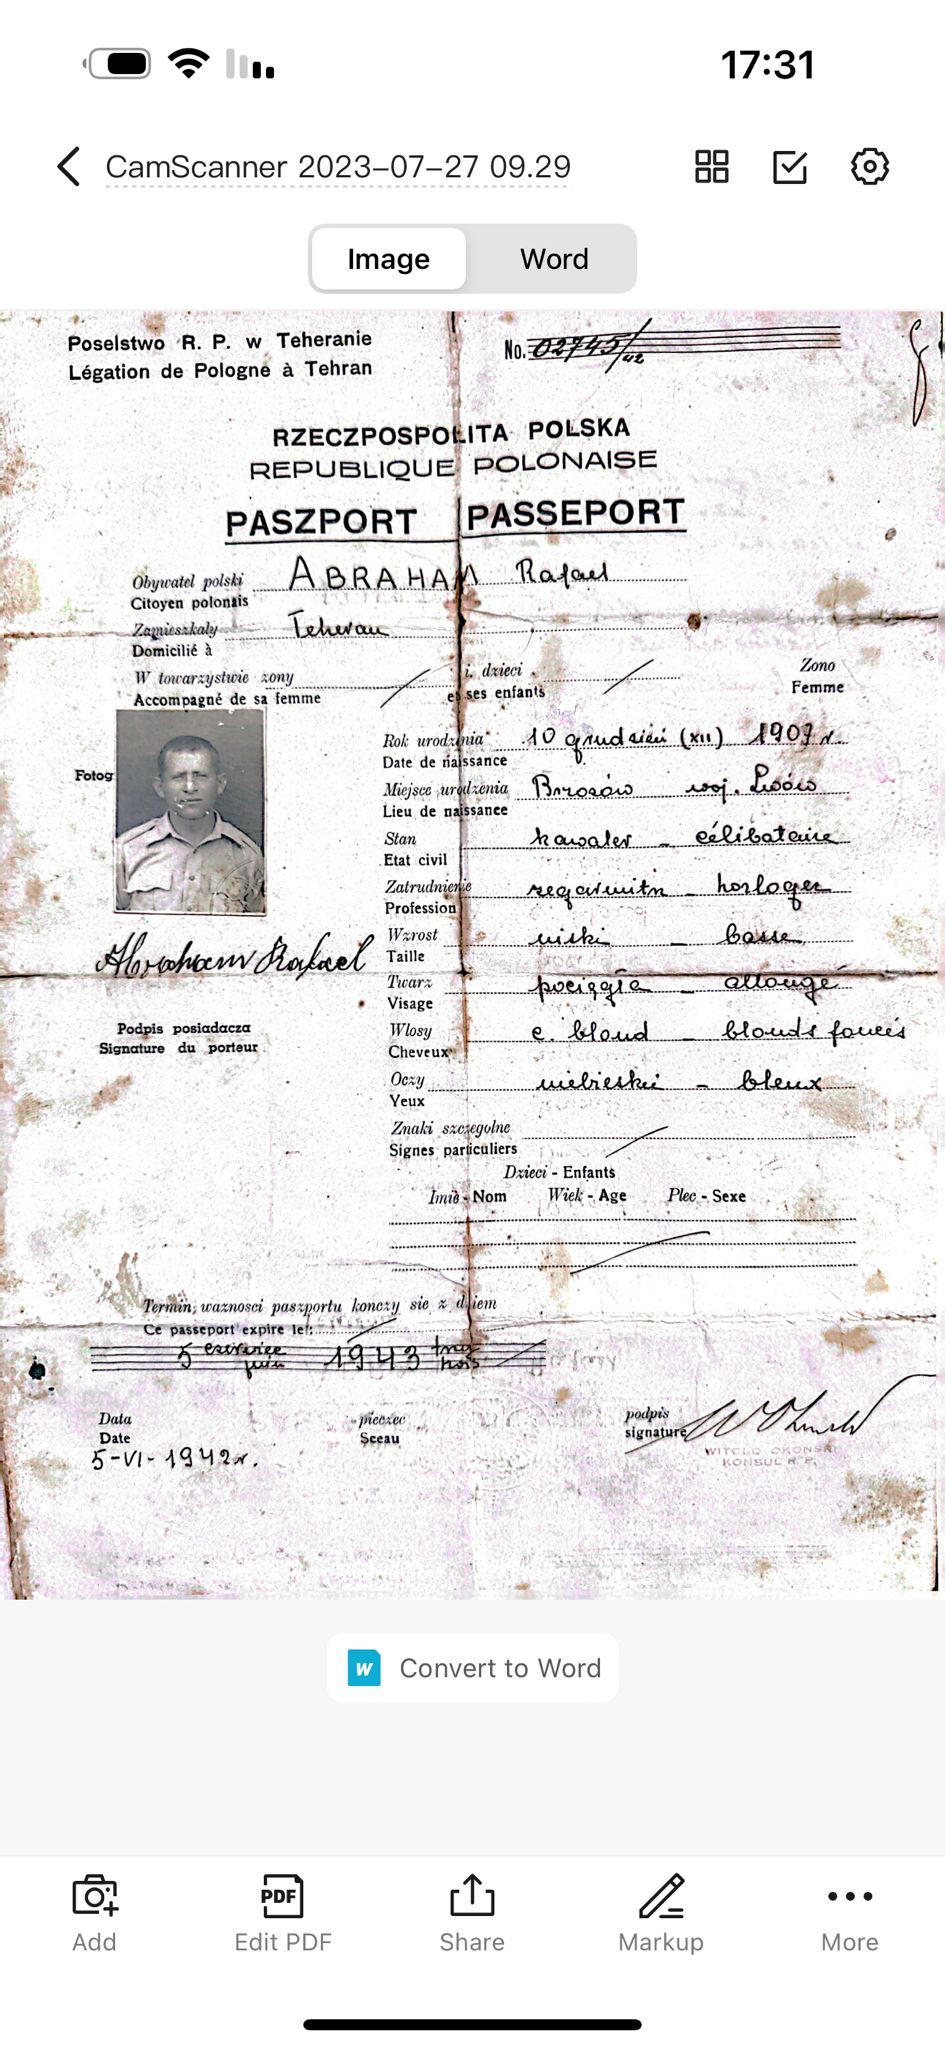 17:31
CamScanner 2023-07-27 09.29
Image Word
Poselstwo R. P. w Teheranie
Légation de Pologne à Tehran
No. 02745/42
RZECZPOSPOLITA POLSKA
REPUBLIQUE POLONAISE
PASZPORT PASSEPORT
Obywatel polski ABRAHAM Rafael
Citoyen polonais
Zamieszkaly Teheran
Domicilié à
W towarzystwie zony i dzieci
Accompagné de sa femme et ses enfants
Zono
Femme
Fotog
Rok urodzenia 10 grudzień (XII) 1907 r.
Date de naissance
Miejsce urodzenia Brzozów woj. Lwów
Lieu de naissance
Stan kawaler - célibataire
Etat civil
Zatrudnienie zegarmistrz - horloger
Profession
Wzrost niski - basse
Taille
Twarz pociągła - allongé
Visage
Wlosy c. blond - blonds foncés
Cheveux
Oczy niebieskie - bleux
Yeux
Znaki szczegolne
Signes particuliers
Abraham Rafael
Podpis posiadacza
Signature du porteur
Dzieci - Enfants
Imiè - Nom Wiek - Age Plec - Sexe
Termin, waznosci paszportu konczy sie z dniem
Ce passeport expire le:
5 czerwiec 1943 trzy
juin trois
Data
Date
5-VI-1942 r.
pieczec
Sceau
podpis
signature
WITOLD OKOŃSKI
KONSUL R.P.
Convert to Word
Add Edit PDF Share Markup More